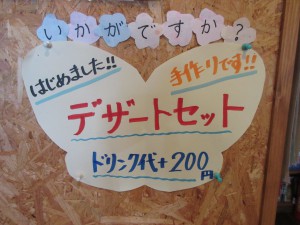 いかがですか?
はじめました!!
手作りです!!
デザートセット
ドリンク代+200円